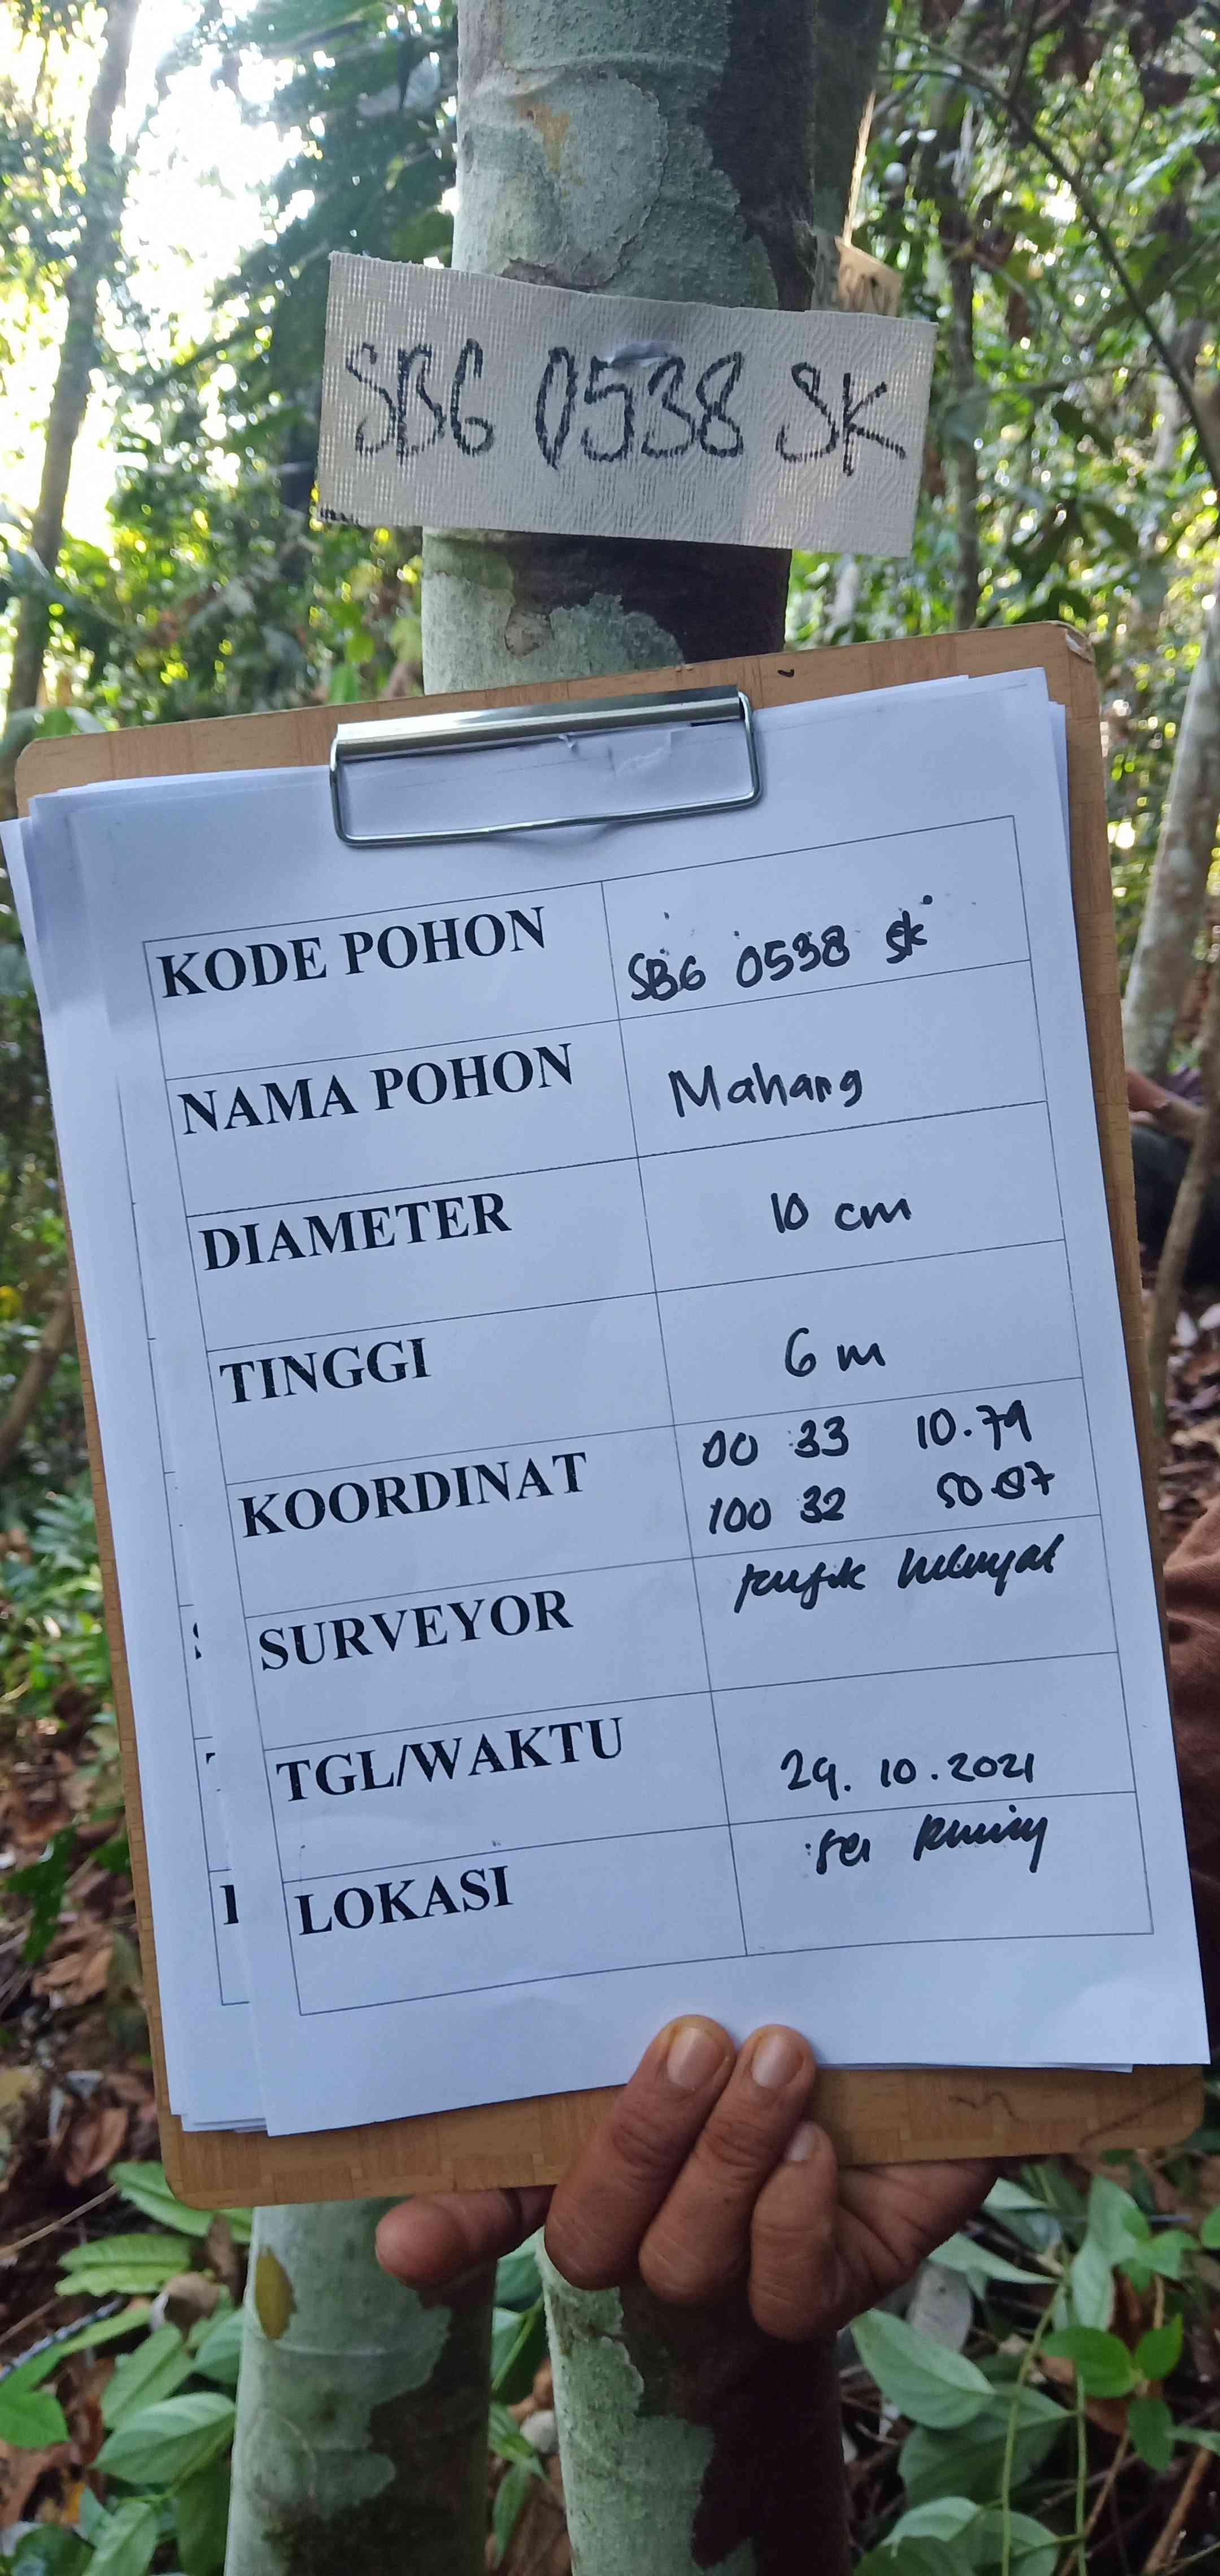 SBG 0538 SK
KODE POHON SBG 0538 SK
NAMA POHON Mahang
DIAMETER 10 cm
TINGGI 6 m
KOORDINAT 00 33 10.79
100 32 50.87
SURVEYOR Taufik
TGL/WAKTU 29.10.2021
LOKASI